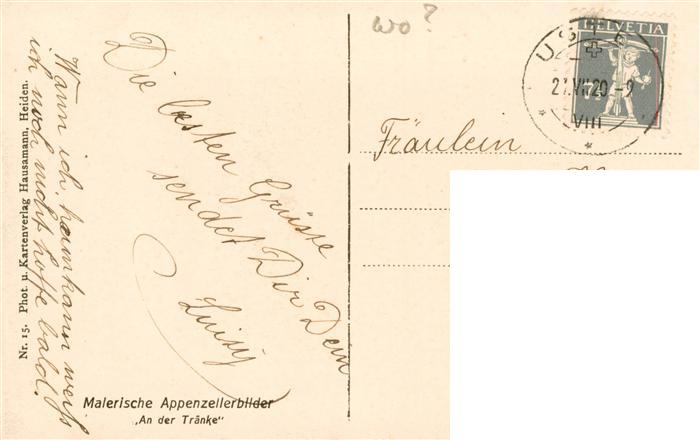 wo?
HELVETIA
7½
27.VII.20.-9
VIII
Fräulein
Die besten Grüsse
sendet Dir Dein
Luisy
Wann ich heimkann weiss
ich noch nicht hoffe bald.
Nr. 15. Phot. u. Kartenverlag Hausamann, Heiden.
Malerische Appenzellerbilder
„An der Tränke"